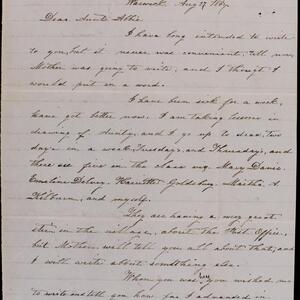 Warwick, Aug 27, 1847.
Dear Aunt Abbie.
I have long intended to write
to you, but it never was convenient, till now,
Mother was going to write, and I thought I
would put in a word.
I have been sick for a week,
have got better now. I am taking lessons in
drawing of Aunty, and I go up to draw, two
days in a week, Tuesdays, and Thursdays, and
there are five in the class viz, Mary Davis.
Emeline Delvey, Harriette Goldsbury, Martha A.
Kilburn, and myself.
They are having a very great
stir in the village, about the Post Office,
but Mother, will tell you all about that, and
I with write about something else.
When you was here you wished me
to write and tell you how far I advanced in